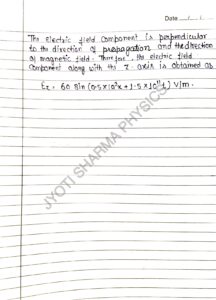 Date ___/___/___
The electric field component is perpendicular
to the direction of propagation and the direction
of magnetic field. Therefore, the electric field
component along with the z-axis is obtained as
Ez = 60 sin (0.5×10³x + 1.5×10¹¹t) V/m.
JYOTI SHARMA PHYSICS